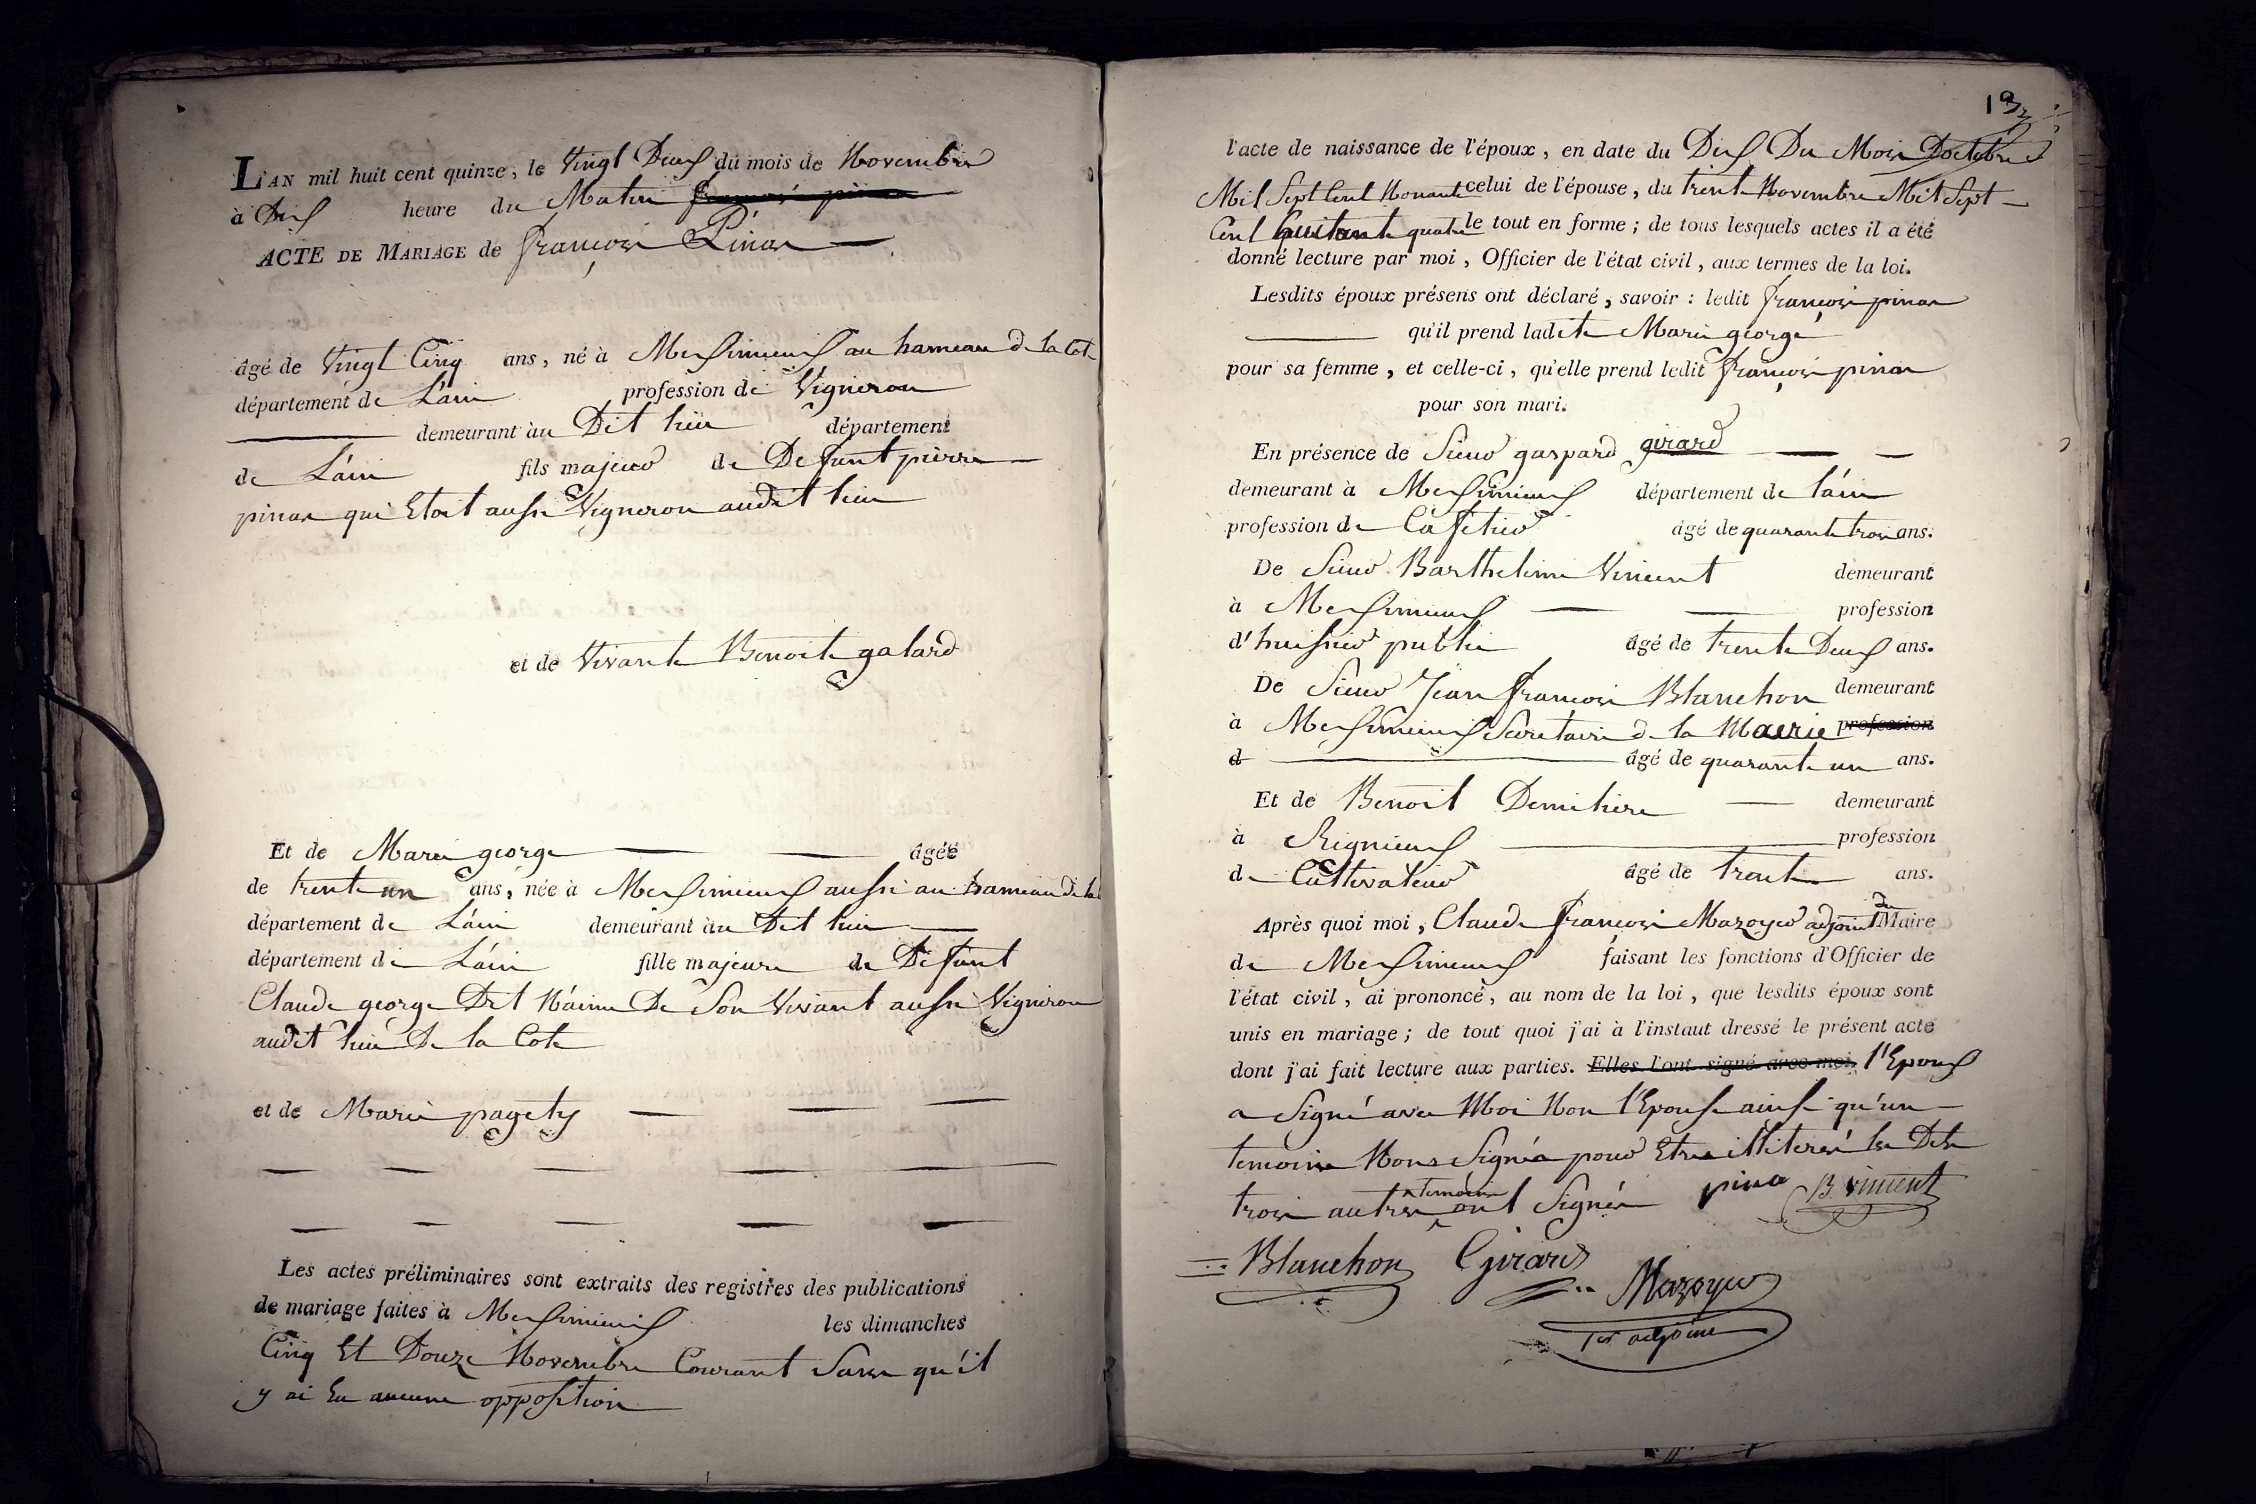 L'AN mil huit cent quinze, le Vingt Deux du mois de Novembre
à Dix heure du Matin françois pinar
ACTE DE MARIAGE de françois Pinar
âgé de Vingt Cinq ans, né à Messimieux au hameau de la Cote
département de L'ain profession de Vigneron
demeurant au Dit lieu département
de L'ain fils majeur de Defunt pierre
pinar qui Etoit aussi Vigneron audit lieu
et de Vivante Benoite galard
Et de Marie george âgée
de trente un ans, née à Messimieux aussi au hameau de la
département de L'ain demeurant au Dit lieu
département de L'ain fille majeure de Defunt
Claude george Dit Son Vivant aussi Vigneron
audit lieu De la Cote
et de Marie pagety
Les actes préliminaires sont extraits des registres des publications
de mariage faites à Messimieux les dimanches
Cinq Et Douze Novembre Courant Sans qu'il
y ai Eu aucune opposition
13
l'acte de naissance de l'époux, en date du Dix Du Mois D'octobre
Mil Sept Cent Nonante celui de l'épouse, du trente Novembre Mil Sept
Cent huitante quatre le tout en forme; de tous lesquels actes il a été
donné lecture par moi, Officier de l'état civil, aux termes de la loi.
Lesdits époux présens ont déclaré, savoir: ledit françois pinar
qu'il prend ladite Marie george
pour sa femme, et celle-ci, qu'elle prend ledit françois pinar
pour son mari.
En présence de Sieur gaspard girard
demeurant à Messimieux département de l'ain
profession de Cafetier âgé de quarante trois ans.
De Sieur Barthelemi Vincent demeurant
à Messimieux profession
d'huissier public âgé de trente Deux ans.
De Sieur Jean françois Blanchon demeurant
à Messimieux Secretaire de la Maerie profession
d âgé de quarante un ans.
Et de Benoit demeurant
à Rignieux profession
de Cultivateur âgé de trente ans.
Après quoi moi, Claude françois Mazoyer adjoint du Maire
de Messimieux faisant les fonctions d'Officier de
l'état civil, ai prononcé, au nom de la loi, que lesdits époux sont
unis en mariage; de tout quoi j'ai à l'instant dressé le présent acte
dont j'ai fait lecture aux parties. Elles l'ont signé avec moi, l'Epoux
a Signé avec Moi Non l'Epouse ainsi qu'un
temoins Nons Signés pour Etre illiterés les Dits
trois autres temoins ont Signés pina B. vincent
Blanchon Girard Mazoyer
1er adjoint